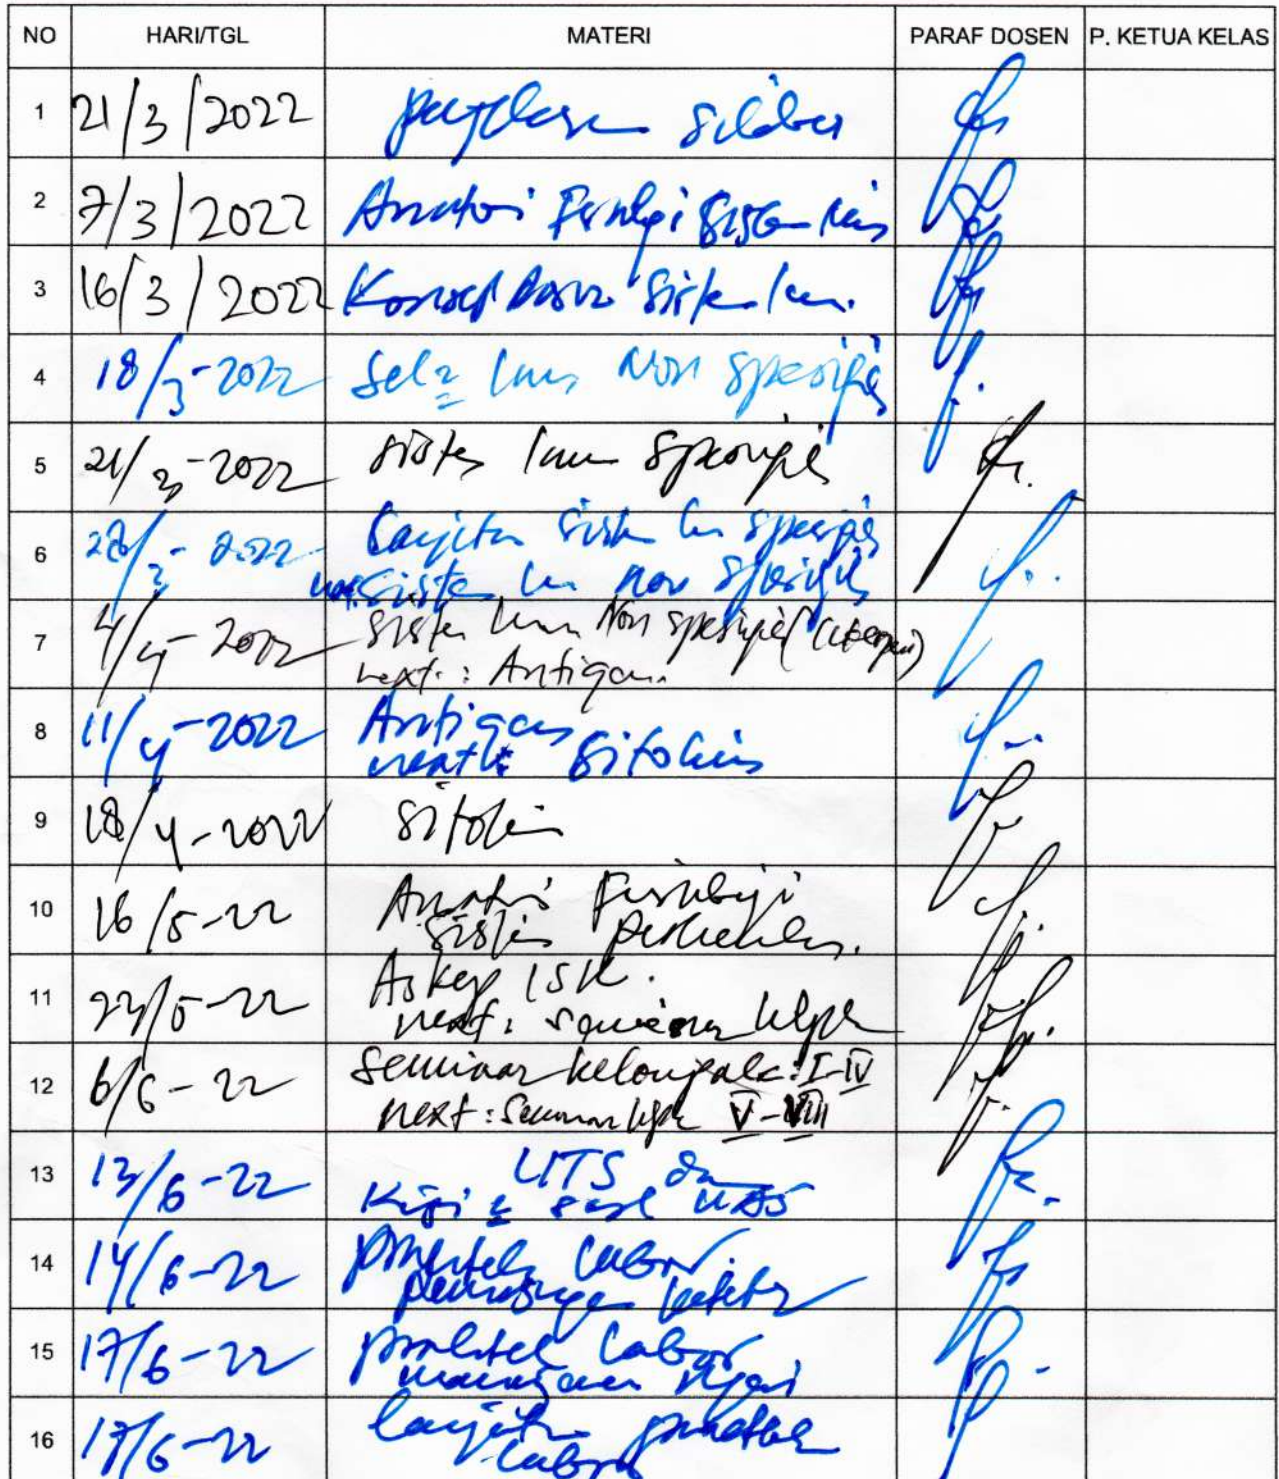 NO HARI/TGL MATERI PARAF DOSEN P. KETUA KELAS
1 21/3/2022 silabus
2 7/3/2022 Anatomi Fisiologi Sistem Imun
3 16/3/2022 Konsep Dasar Sistem Imun.
4 18/3-2022 Sel2 Imun Non Spesifik
5 21/3-2022 sistem Imun Spesifik
6 28/3-2022 Lanjutan sistem Imun spesifik
next: sistem Imun non spesifik
7 4/4-2022 sistem Imun Non spesifik
next: Antigen.
8 11/4-2022 Antigen
next: Sitokin
9 18/4-2022 Sitokin
10 16/5-22 Anatomi Fisiologi
sistem perkemihan.
11 23/5-22 Askep ISK.
next: seminar klpk
12 6/6-22 Seminar kelompok: I-IV
next: Seminar klpk V-VIII
13 13/6-22 UTS dan
Kisi2 soal UAS
14 14/6-22 praktek Labor.
pemasangan kateter
15 17/6-22 praktek Labor
manajemen nyeri
16 17/6-22 lanjutan praktek
Labor